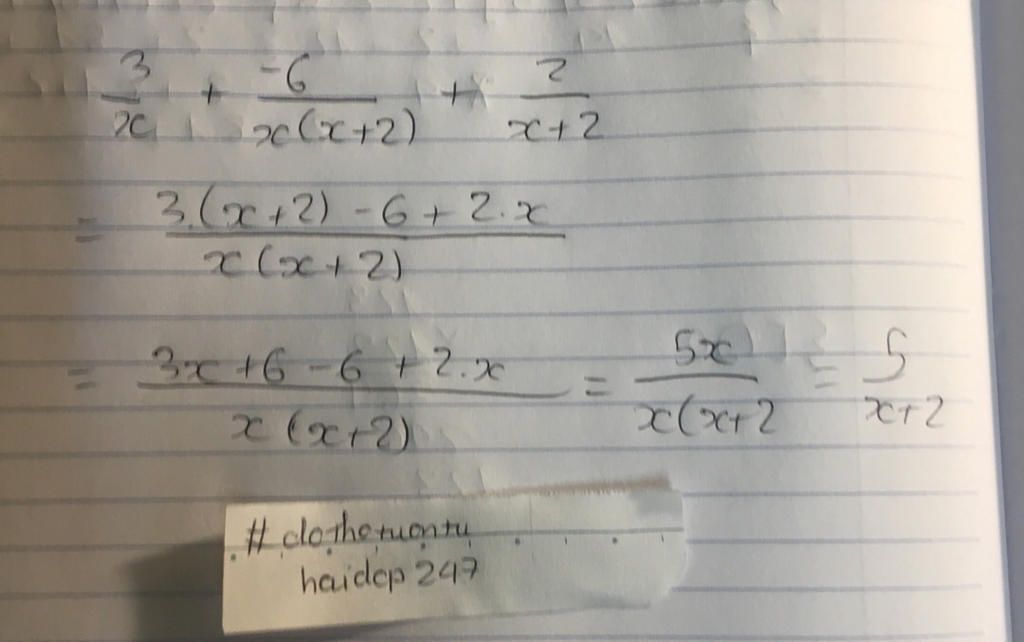 3/x + -6/x(x+2) + 2/x+2
= 3.(x+2) -6 + 2.x / x(x+2)
= 3x+6 -6 + 2.x / x(x+2) = 5x / x(x+2 = 5 / x+2
# dothetuantu
haidep247